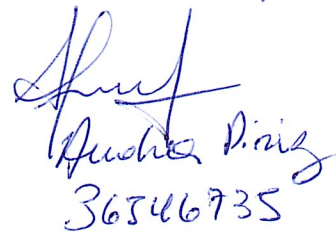 Andrea Diniz
36546735